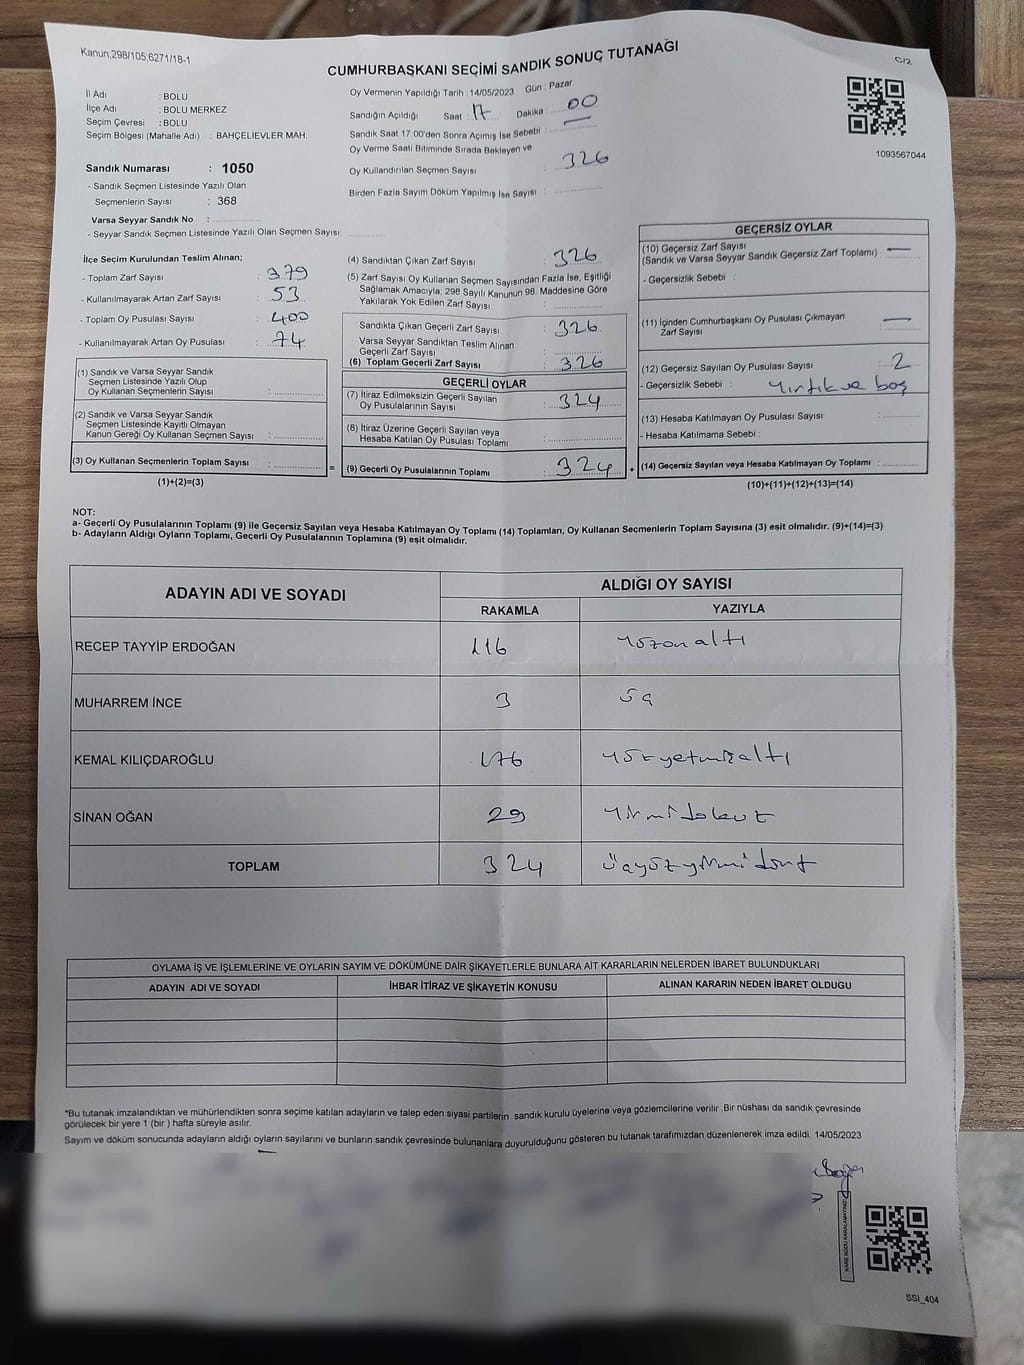 Kanun;298/105;6271/18-1
CUMHURBAŞKANI SEÇİMİ SANDIK SONUÇ TUTANAĞI
C/2
İl Adı : BOLU
İlçe Adı : BOLU MERKEZ
Seçim Çevresi : BOLU
Seçim Bölgesi (Mahalle Adı) : BAHÇELİEVLER MAH.
Sandık Numarası : 1050
- Sandık Seçmen Listesinde Yazılı Olan
Seçmenlerin Sayısı : 368
Varsa Seyyar Sandık No :
- Seyyar Sandık Seçmen Listesinde Yazılı Olan Seçmen Sayısı:
Oy Vermenin Yapıldığı Tarih : 14/05/2023 Gün : Pazar
Sandığın Açıldığı Saat : 17 Dakika : 00
Sandık Saat 17.00'den Sonra Açımış İse Sebebi : —
Oy Verme Saati Bitiminde Sırada Bekleyen ve
Oy Kullandırılan Seçmen Sayısı : 326
Birden Fazla Sayım Döküm Yapılmış İse Sayısı :
1093567044
İlçe Seçim Kurulundan Teslim Alınan;
- Toplam Zarf Sayısı : 379
- Kullanılmayarak Artan Zarf Sayısı : 53
- Toplam Oy Pusulası Sayısı : 400
- Kullanılmayarak Artan Oy Pusulası : 74
(1) Sandık ve Varsa Seyyar Sandık
Seçmen Listesinde Yazılı Olup
Oy Kullanan Seçmenlerin Sayısı :
(2) Sandık ve Varsa Seyyar Sandık
Seçmen Listesinde Kayıtlı Olmayan
Kanun Gereği Oy Kullanan Seçmen Sayısı :
(3) Oy Kullanan Seçmenlerin Toplam Sayısı : =
(1)+(2)=(3)
(4) Sandıktan Çıkan Zarf Sayısı : 326
(5) Zarf Sayısı Oy Kullanan Seçmen Sayısından Fazla İse, Eşitliği
Sağlamak Amacıyla; 298 Sayılı Kanunun 98. Maddesine Göre
Yakılarak Yok Edilen Zarf Sayısı :
Sandıkta Çıkan Geçerli Zarf Sayısı : 326
Varsa Seyyar Sandıktan Teslim Alınan
Geçerli Zarf Sayısı :
(6) Toplam Geçerli Zarf Sayısı : 326
GEÇERLİ OYLAR
(7) İtiraz Edilmeksizin Geçerli Sayılan
Oy Pusulalarının Sayısı : 324
(8) İtiraz Üzerine Geçerli Sayılan veya
Hesaba Katılan Oy Pusulası Toplamı :
(9) Geçerli Oy Pusulalarının Toplamı : 324 +
GEÇERSİZ OYLAR
(10) Geçersiz Zarf Sayısı
(Sandık ve Varsa Seyyar Sandık Geçersiz Zarf Toplamı) : —
- Geçersizlik Sebebi :
(11) İçinden Cumhurbaşkanı Oy Pusulası Çıkmayan
Zarf Sayısı : —
(12) Geçersiz Sayılan Oy Pusulası Sayısı : 2
- Geçersizlik Sebebi : Yırtık ve boş
(13) Hesaba Katılmayan Oy Pusulası Sayısı :
- Hesaba Katılmama Sebebi :
(14) Geçersiz Sayılan veya Hesaba Katılmayan Oy Toplamı :
(10)+(11)+(12)+(13)=(14)
NOT:
a- Geçerli Oy Pusulalarının Toplamı (9) ile Geçersiz Sayılan veya Hesaba Katılmayan Oy Toplamı (14) Toplamları, Oy Kullanan Seçmenlerin Toplam Sayısına (3) eşit olmalıdır. (9)+(14)=(3)
b- Adayların Aldığı Oyların Toplamı, Geçerli Oy Pusulalarının Toplamına (9) eşit olmalıdır.
ADAYIN ADI VE SOYADI
ALDIĞI OY SAYISI
RAKAMLA YAZIYLA
RECEP TAYYİP ERDOĞAN 116 yüzonaltı
MUHARREM İNCE 3 üç
KEMAL KILIÇDAROĞLU 176 yüzyetmişaltı
SİNAN OĞAN 29 yirmidokuz
TOPLAM 324 üçyüzyirmidört
OYLAMA İŞ VE İŞLEMLERİNE VE OYLARIN SAYIM VE DÖKÜMÜNE DAİR ŞİKAYETLERLE BUNLARA AİT KARARLARIN NELERDEN İBARET BULUNDUKLARI
ADAYIN ADI VE SOYADI İHBAR İTİRAZ VE ŞİKAYETİN KONUSU ALINAN KARARIN NEDEN İBARET OLDUĞU
*Bu tutanak imzalandıktan ve mühürlendikten sonra seçime katılan adayların ve talep eden siyasi partilerin sandık kurulu üyelerine veya gözlemcilerine verilir .Bir nüshası da sandık çevresinde
görülecek bir yere 1 (bir ) hafta süreyle asılır.
Sayım ve döküm sonucunda adayların aldığı oyların sayılarını ve bunların sandık çevresinde bulunanlara duyurulduğunu gösteren bu tutanak tarafımızdan düzenlenerek imza edildi. 14/05/2023
SSI_404